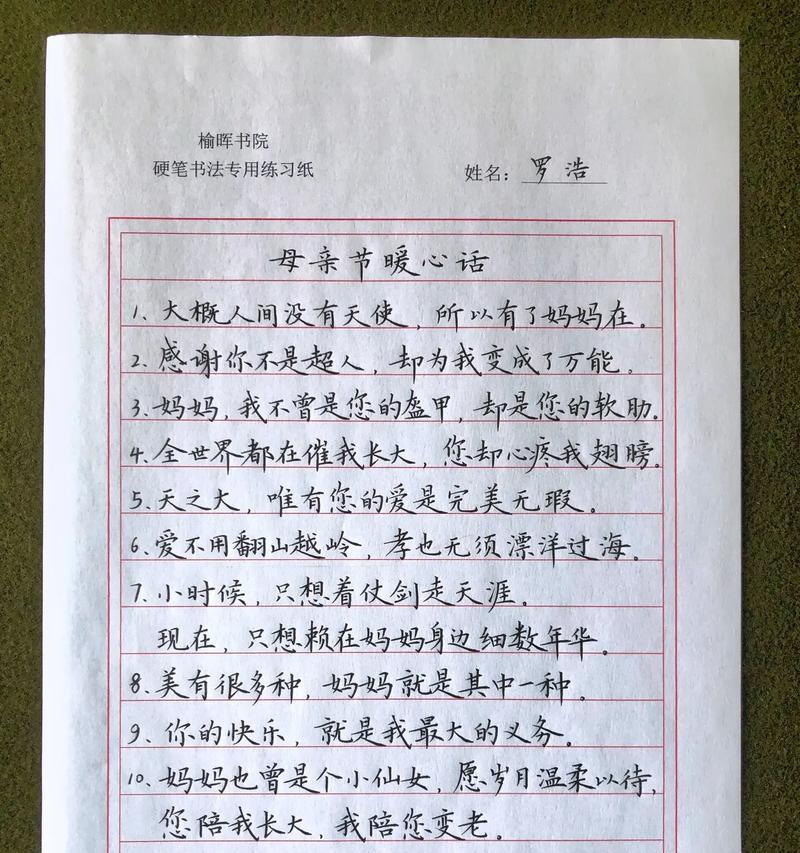 榆晖书院
硬笔书法专用练习纸
姓名：罗浩
母亲节暖心话
1、大概人间没有天使，所以有了妈妈在。
2、感谢你不是超人，却为我变成了万能。
3、妈妈，我不曾是您的盔甲，却是您的软肋。
4、全世界都在催我长大，您却心疼我翅膀。
5、天之大，唯有您的爱是完美无瑕。
6、爱不用翻山越岭，孝也无须漂洋过海。
7、小时候，只想着仗剑走天涯。
现在，只想赖在妈妈身边细数年华。
8、美有很多种，妈妈就是其中一种。
9、你的快乐，就是我最大的义务。
10、妈妈也曾是个小仙女，愿岁月温柔以待，
您陪我长大，我陪您变老。